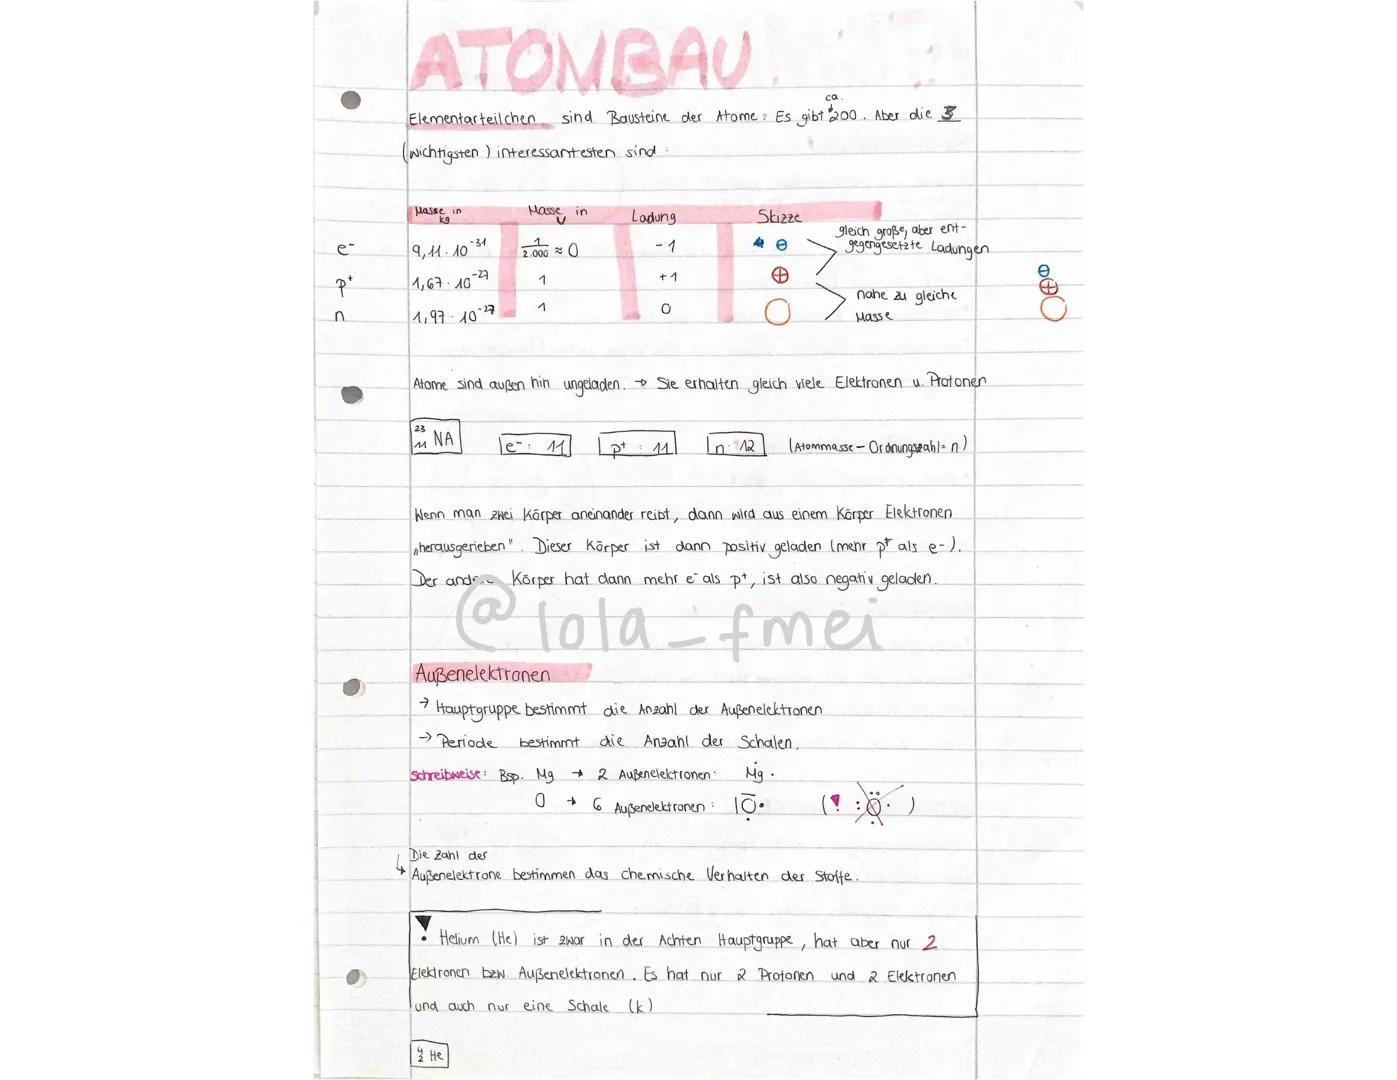 ATOMBAU
ca.
Elementarteilchen sind Bausteine der Atome: Es gibt 200. Aber die 3
(wichtigsten) interessantesten sind:
Masse in kg Masse in u Ladung Skizze
e⁻ 9,11·10⁻³¹ 1/2.000 ≈ 0 -1 ⊖
p⁺ 1,67·10⁻²⁷ 1 +1 ⊕
n 1,97·10⁻²⁷ 1 0
gleich große, aber ent-
gegengesetzte Ladungen
nahe zu gleiche
Masse
⊖
⊕
Atome sind außen hin ungeladen. → Sie erhalten gleich viele Elektronen u. Protonen
23
11 NA e⁻: 11 p⁺: 11 n: 12 (Atommasse - Ordnungszahl = n)
Wenn man zwei Körper aneinander reibt, dann wird aus einem Körper Elektronen
„herausgerieben". Dieser Körper ist dann positiv geladen (mehr p⁺ als e-).
Der Körper hat dann mehr e⁻ als p⁺, ist also negativ geladen.
@lola_fmei
Außenelektronen
→ Hauptgruppe bestimmt die Anzahl der Außenelektronen
→ Periode bestimmt die Anzahl der Schalen.
Schreibweise: Bsp. Mg → 2 Außenelektronen: Mg
O → 6 Außenelektronen: O (! O)
Die Zahl der
↳ Außenelektrone bestimmen das chemische Verhalten der Stoffe.
! Helium (He) ist zwar in der Achten Hauptgruppe, hat aber nur 2
Elektronen bzw. Außenelektronen. Es hat nur 2 Protonen und 2 Elektronen
und auch nur eine Schale (k)
4
2 He